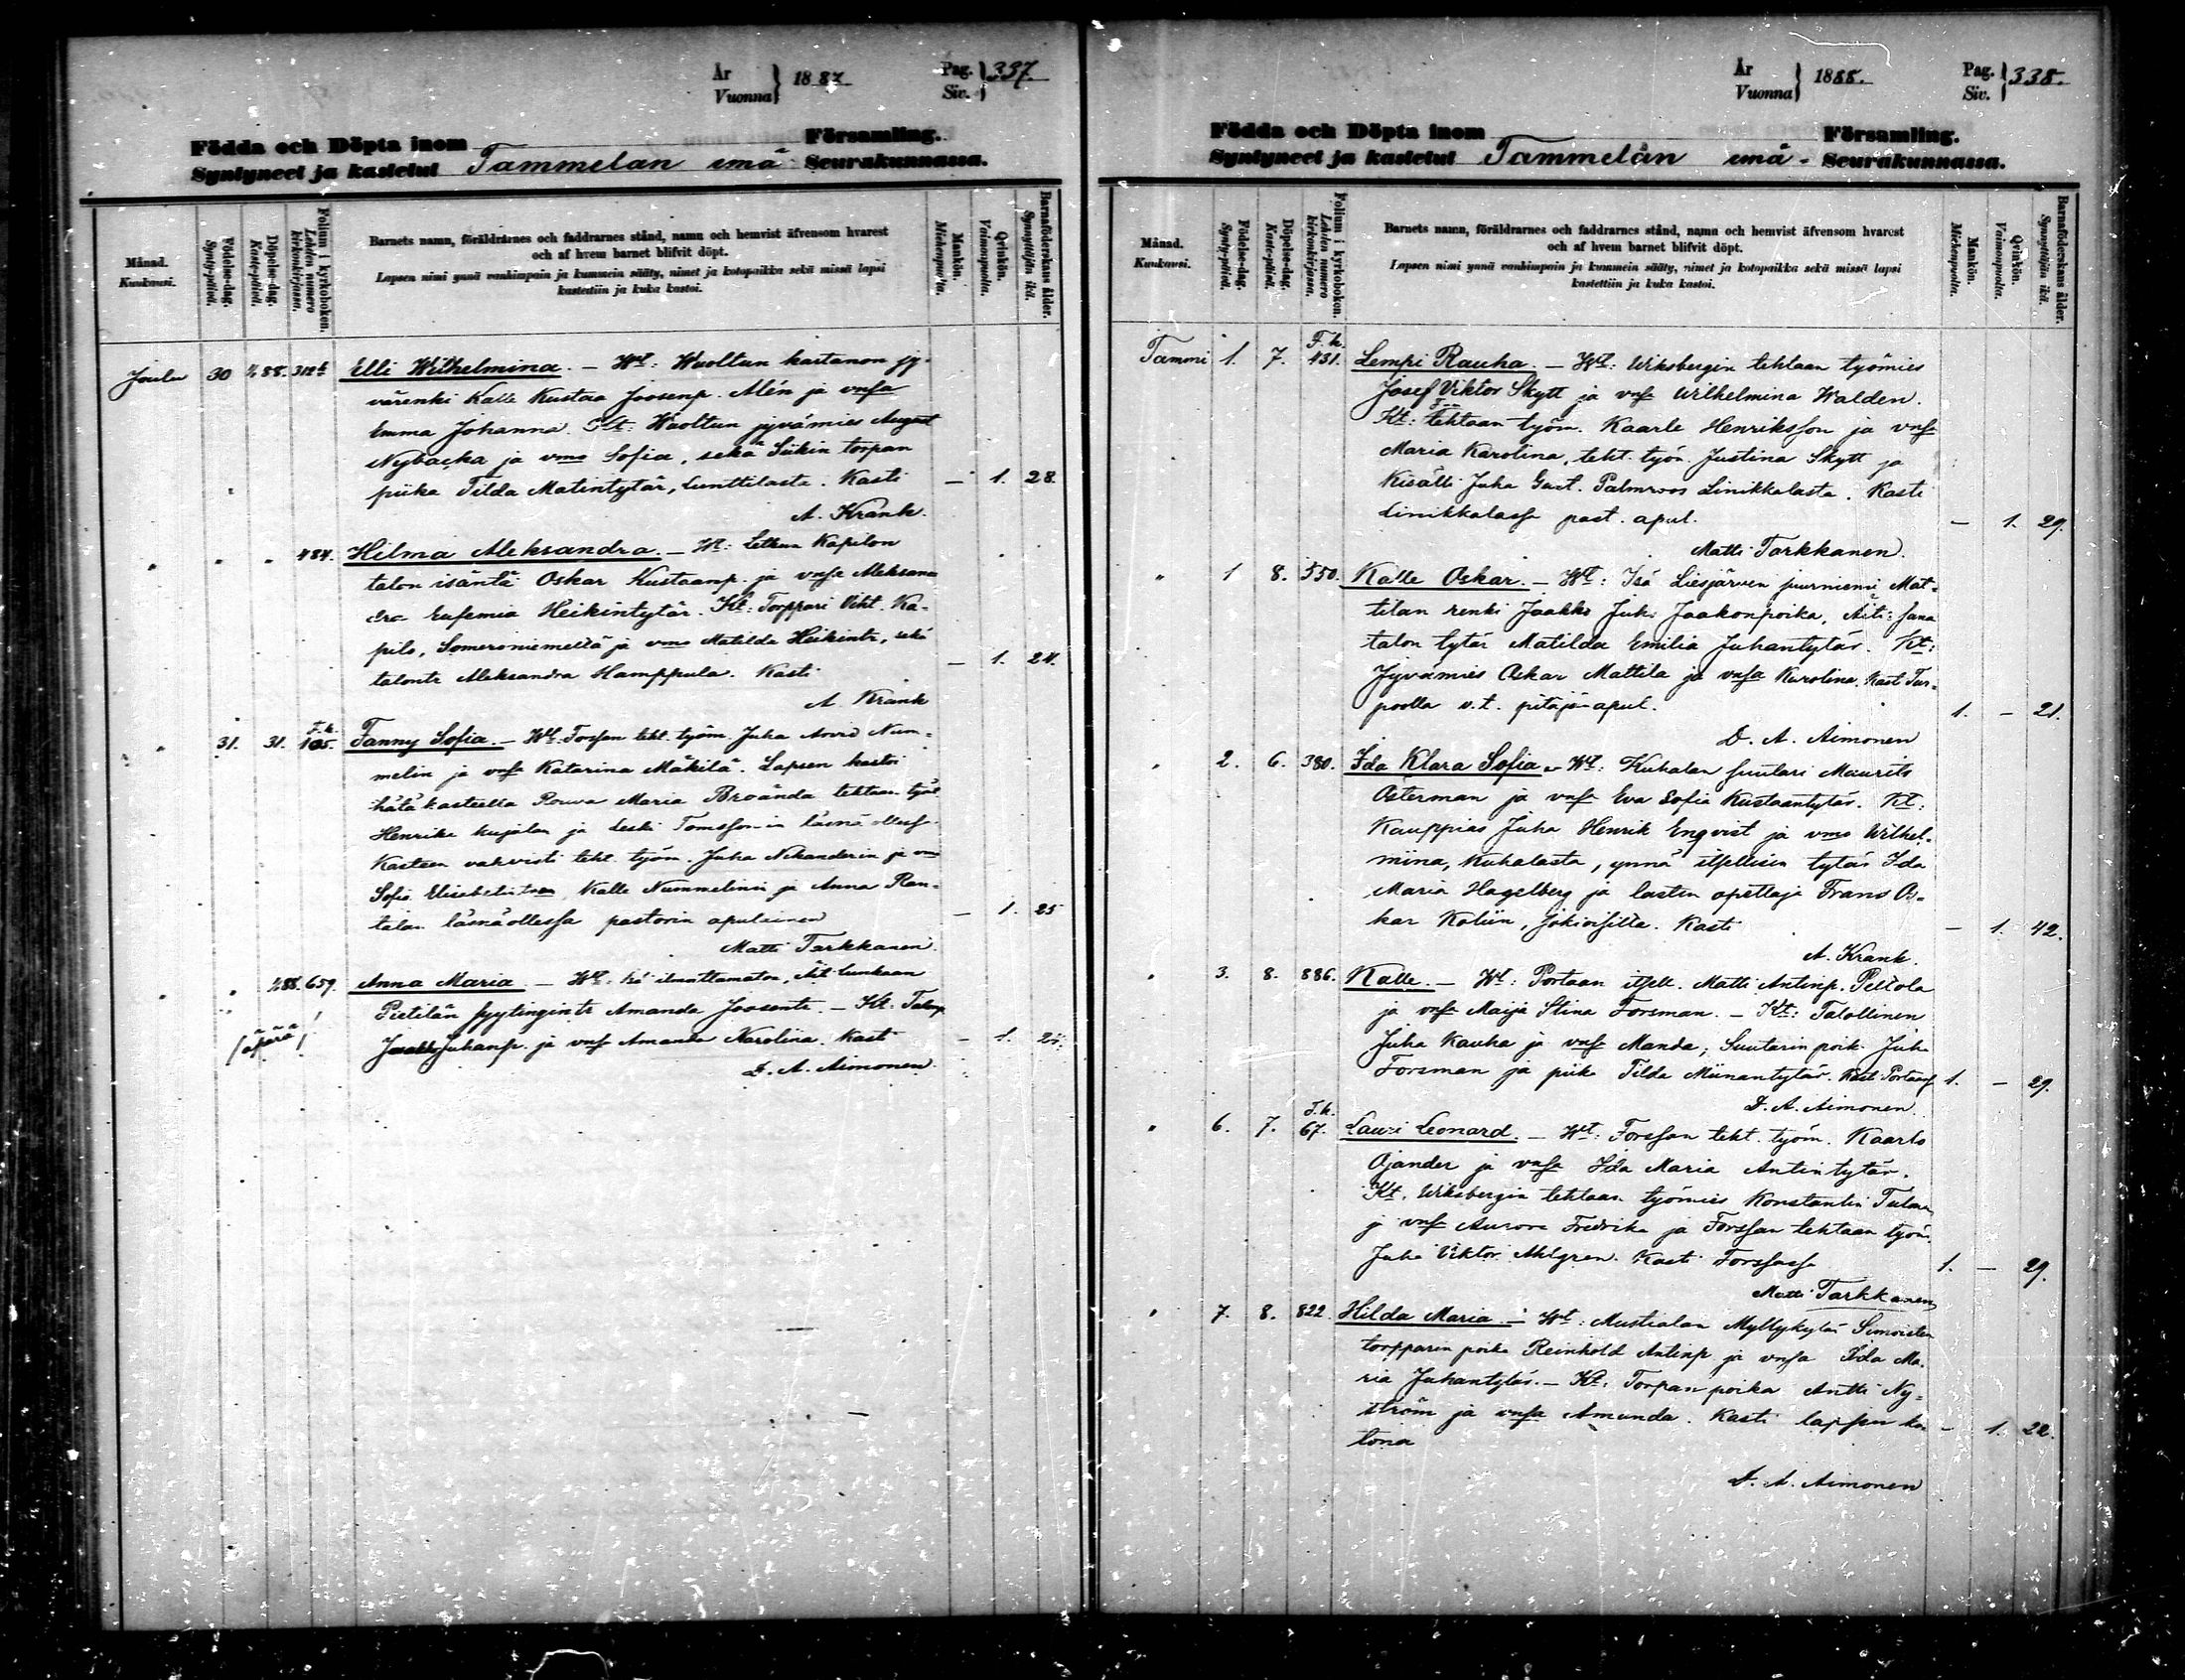 År
Vuonna } 1887
Pag.
Siv. } 337.
Födda och Döpta inom Församling.
Syntyneet ja kastetut Tammelan emä Seurakunnassa.
Månad.
Kuukausi.
Födelse-dag.
Synty-päivä.
Döpelse-dag.
Kaste-päivä.
Folium i kyrkoboken.
Lehden numero kirkonkirjassa.
Barnets namn, föräldrarnes och faddrarnes stånd, namn och hemvist äfvensom hvarest
och af hvem barnet blifvit döpt.
Lapsen nimi ynnä vanhimpain ja kummein sääty, nimet ja kotopaikka sekä missä lapsi
kastettiin ja kuka kastoi.
Mankön.
Miehenpuolta.
Qvinkön.
Vaimonpuolta.
Barnaföderskans ålder.
Synnyttäjän ikä.
Joulu 30 88. Elli Wilhelmina. – Wt: Wuoltun kartanon jy-
värenki Kalle Kustaa Joosenp. Alén ja vnsa
Emma Johanna. Kt: Wuoltun jyvämies August
Nybacka ja vmo Sofia, sekä Siikin torpan
piika Tilda Matintytär, Lunttilasta. Kasti – 1. 28.
A. Krank.
" " " 484. Hilma Aleksandra. – Wt: Letkun Kapilon
talon isäntä Oskar Kustaanp. ja vnsa Aleksan-
dra Eufemia Heikintytär. Kt: Torppari Viht. Ka-
pilo, Someroniemeltä ja vmo Matilda Heikintr, sekä
talontr Aleksandra Hamppula. Kasti – 1. 24.
A. Krank
" 31. 31. F.k. 105. Fanny Sofia. – Wt: Forssan teht. työm. Juha Arvid Num-
melin ja vnsa Katarina Mäkilä. Lapsen kastoi
hätäkasteella Rouva Maria Broända tehtaan
Henrika Kujalan ja Leski läsnä
Kasteen vahvisti teht. työm. Juha Nikanderin ja vmo
Sofia Kalle Nummelinin ja Anna Ran-
talan läsnäollessa pastorin apulainen – 1. 25
Matti Tarkkanen.
" " 88. 659. Anna Maria – Wt: Isä ilmoittamaton, Äiti Lunkaan
Pietilän syytingintr Amanda Joosentr. – Kt:
/äpärä/ Juhanp. ja vnsa Amanda Karolina. Kasti – 1.
D. A. Aimonen.
År
Vuonna } 1888.
Pag.
Siv. } 338.
Födda och Döpta inom Församling.
Syntyneet ja kastetut Tammelan emä- Seurakunnassa.
Månad.
Kuukausi.
Födelse-dag.
Synty-päivä.
Döpelse-dag.
Kaste-päivä.
Folium i kyrkoboken.
Lehden numero kirkonkirjassa.
Barnets namn, föräldrarnes och faddrarnes stånd, namn och hemvist äfvensom hvarest
och af hvem barnet blifvit döpt.
Lapsen nimi ynnä vanhimpain ja kummein sääty, nimet ja kotopaikka sekä missä lapsi
kastettiin ja kuka kastoi.
Mankön.
Miehenpuolta.
Qvinkön.
Vaimonpuolta.
Barnaföderskans ålder.
Synnyttäjän ikä.
Tammi 1. 7. F.k. 431. Lempi Rauha. – Wt: Wiksbergin tehtaan työmies
Josef Viktor Skytt ja vnsa Wilhelmina Walden.
Kt: tehtaan työm. Kaarle Henriksson ja vnsa
Maria Karolina, teht. työn. Justina Skytt ja
Kisälli Juha Gust. Palmroos Linikkalasta. Kasti
Linikkalassa past. apul. – 1. 29.
Matti Tarkkanen.
" 1 8. 550. Kalle Oskar. – Wt: Isä Liesjärven juurniemi Mat-
tilan renki Jaakko Juho Jaakonpoika, Äiti: sama
talon tytär Matilda Emilia Juhantytär. Kt:
Jyvämies Oskar Mattila ja vnsa Karolina. Kast. Tur-
poolla v.t. pitäjä-apul. 1. – 21.
D. A. Aimonen
" 2. 6. 380. Ida Klara Sofia – Wt: Kuhalan suutari Maurits
Österman ja vnsa Eva Sofia Kustaantytär. Kt:
Kauppias Juha Henrik Enqvist ja vmo Wilhel-
miina, Kuhalasta, ynnä itsellisen tytär Ida
Maria Hagelberg ja lasten opettaja Frans Os-
kar Koliin, Jokioisilta. Kasti – 1. 42.
A. Krank.
" 3. 8. 886. Kalle. – Wt: Portaan itsell. Matti Antinp. Peltola
ja vnsa Maija Stina Forsman. – Kt: Talollinen
Juha Kauha ja vnsa Manda; Suutarin poik. Juha
Forsman ja piika Tilda Miinantytär. Kast. Portaas 1. – 29.
D. A. Aimonen.
" 6. 7. F.k. 67. Lauri Leonard. – Wt: Forssan teht. työm. Kaarlo
Ojander ja vnsa Ida Maria Antintytär.
Kt. Wiksbergin tehtaan työmies Konstantin
ja vnsa Aurora Fredrika ja Forssan tehtaan työm.
Juha Viktor Ahlgren. Kasti Forssassa 1. – 29.
Matti Tarkkanen
" 7. 8. 822. Hilda Maria – Wt: Mustialan Myllykylän Simoisten
torpparin poika Reinhold Antinp. ja vnsa Ida Ma-
ria Juhantytär. – Kt: Torpan poika Antti Ny-
ström ja vnsa Amanda. Kasti lapsen ko- – 1. 22.
tona
D. A. Aimonen